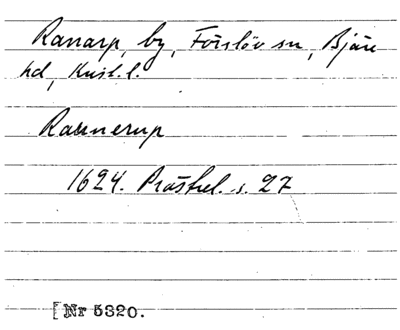 Ranarp, by, Förslöv sn, Bjäre
hd, Krist. l.
Rannerup
1624. Prästrel. s. 27
[Nr 5320.